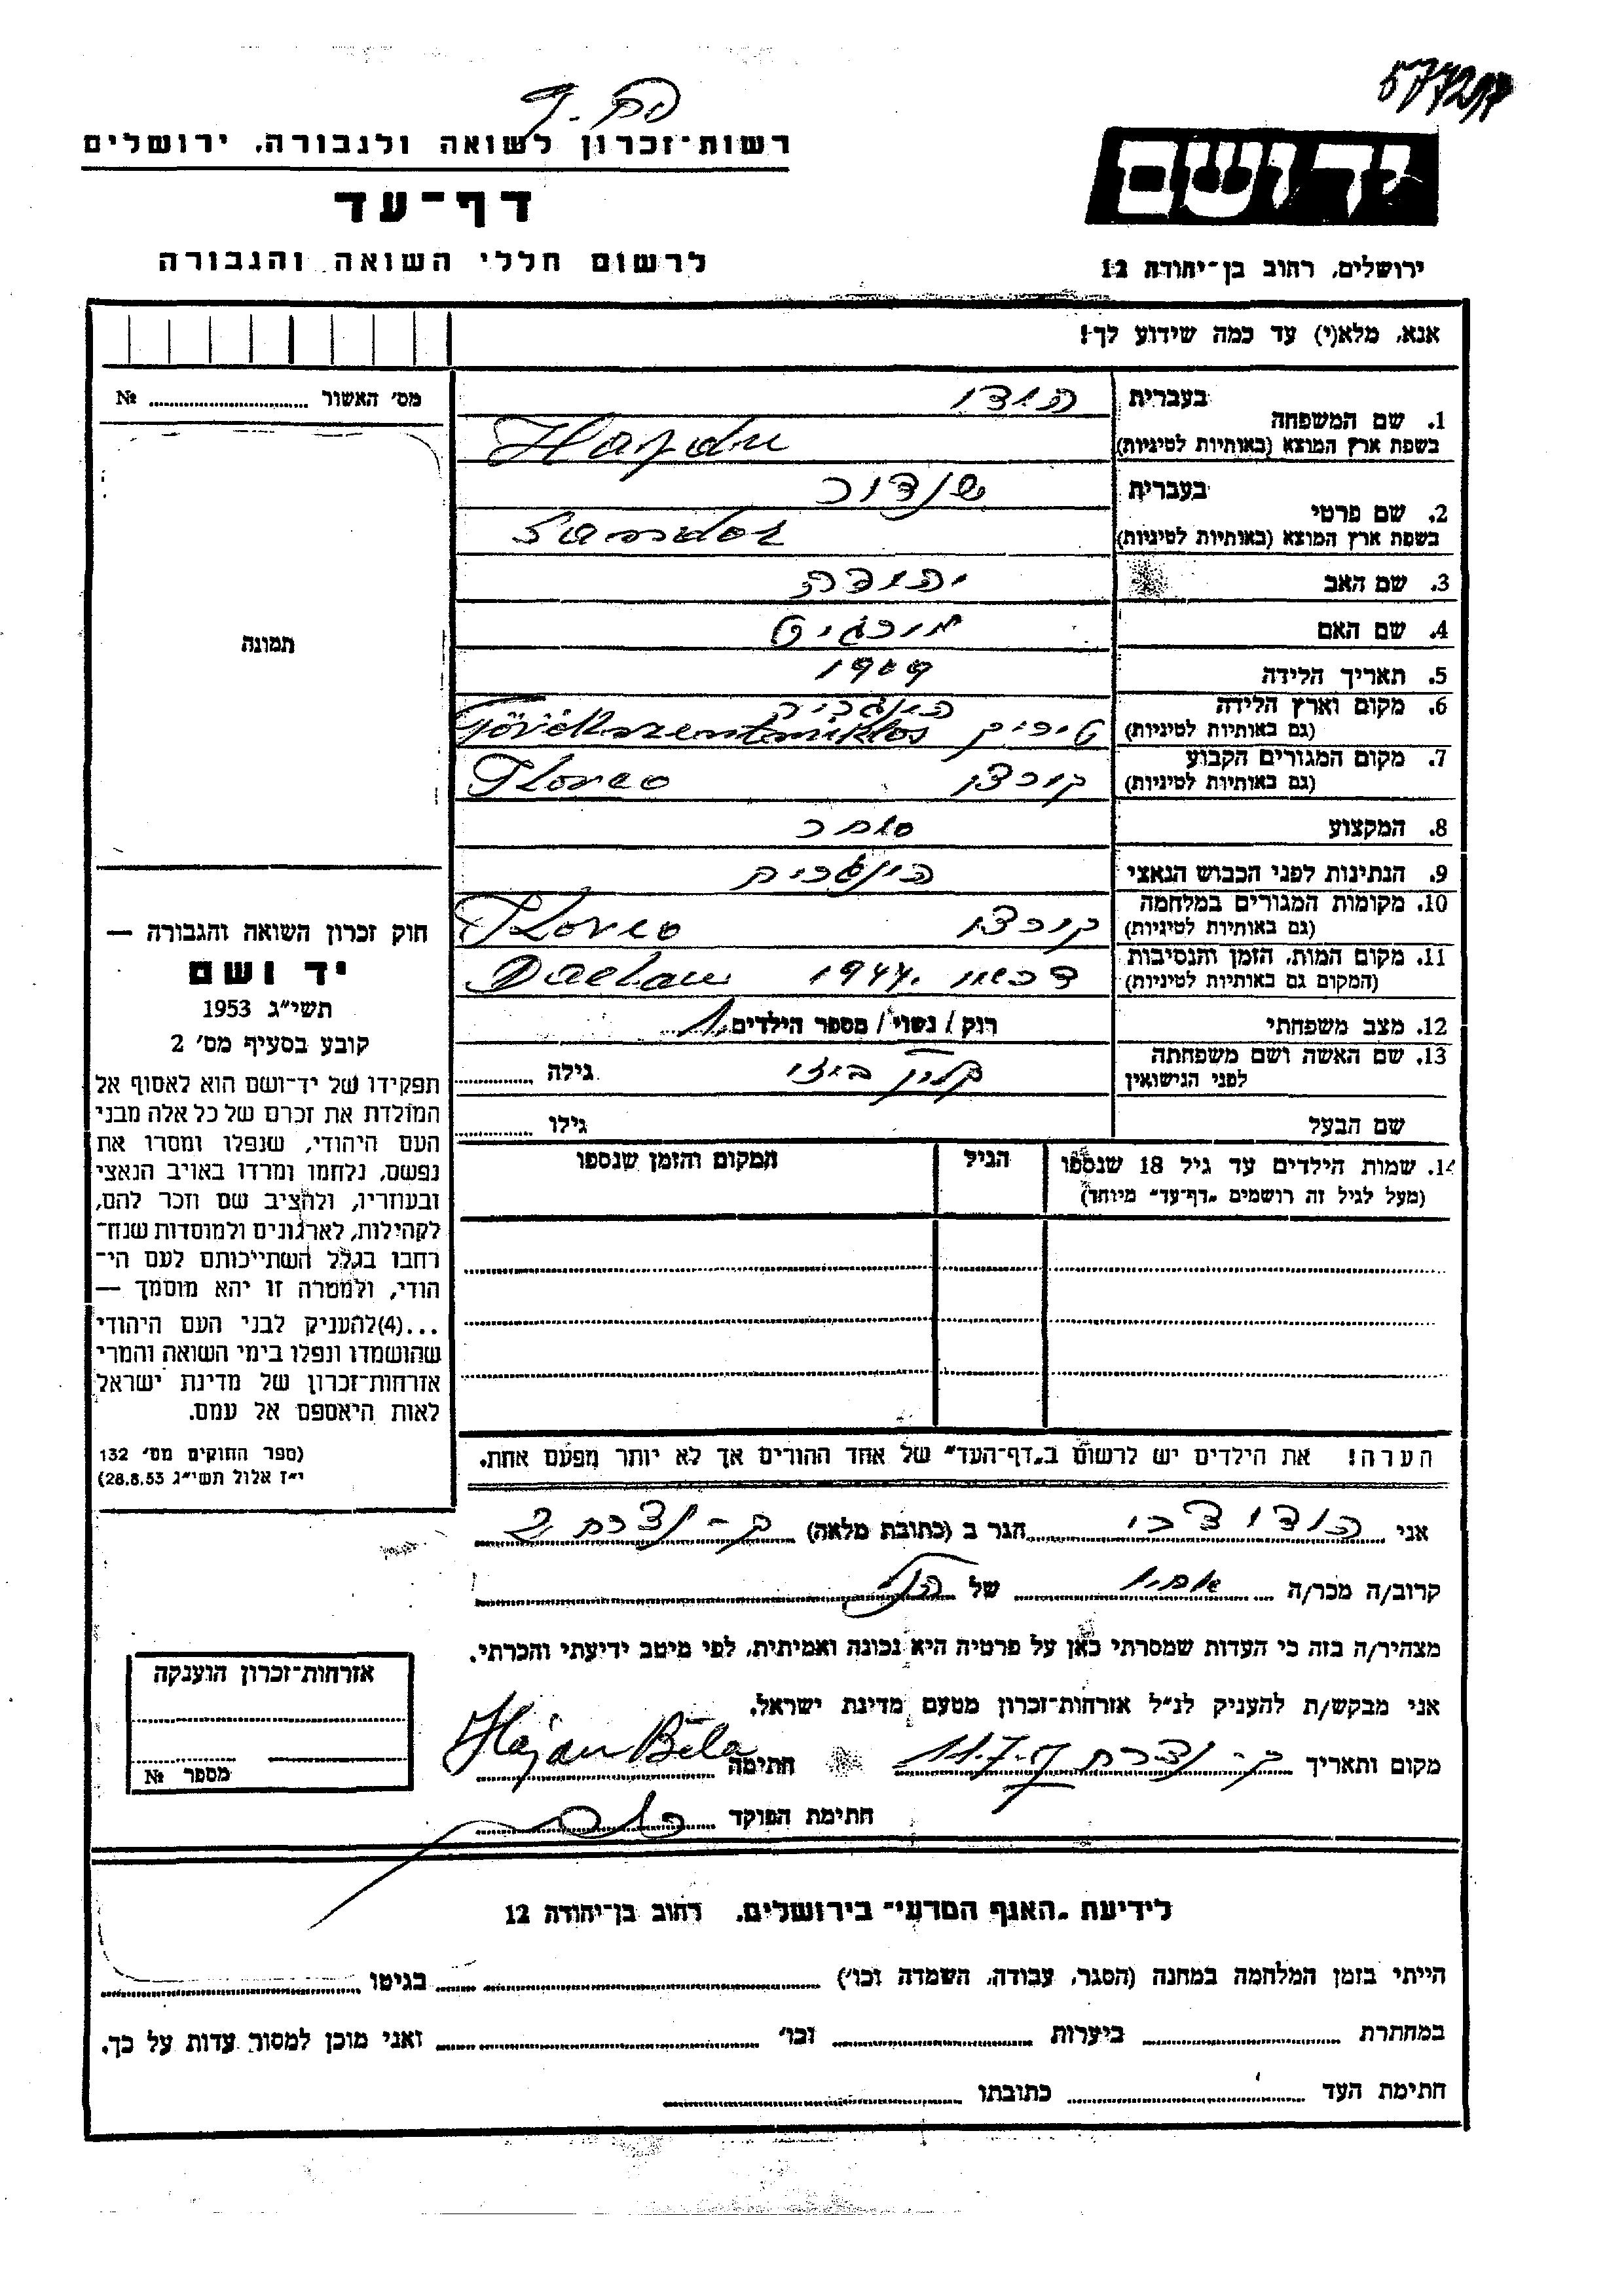 577217
רשות־זכרון לשואה ולגבורה, ירושלים
דף־עד
לרשום חללי השואה והגבורה
יד ושם
ירושלים, רחוב בן־יהודה 12
אנא, מלא(י) עד כמה שידוע לך!
מס׳ האשור ........ №
תמונה
1. שם המשפחה
בעברית הידו
בשפת ארץ המוצא (באותיות לטיניות) Hajdu
2. שם פרטי
בעברית שנדור
בשפת ארץ המוצא (באותיות לטיניות) Sandor
3. שם האב יהודה
4. שם האם מרגיט
5. תאריך הלידה 1909
6. מקום וארץ הלידה הונגריה
(גם באותיות לטיניות) Törökszentmiklos
7. מקום המגורים הקבוע
(גם באותיות לטיניות)
8. המקצוע סוחר
9. הנתינות לפני הכבוש הנאצי הונגרית
10. מקומות המגורים במלחמה
(גם באותיות לטיניות)
11. מקום המות, הזמן והנסיבות
(המקום גם באותיות לטיניות) דכאו 1944. Dachau
12. מצב משפחתי רוק / נשוי / מספר הילדים 1
13. שם האשה ושם משפחתה
לפני הנישואין גילה ........
שם הבעל גילו ........
14. שמות הילדים עד גיל 18 שנספו הגיל המקום והזמן שנספו
(מעל לגיל זה רושמים „דף־עד״ מיוחד)
הערה! את הילדים יש לרשום ב„דף־העד״ של אחד ההורים אך לא יותר מפעם אחת.
חוק זכרון השואה והגבורה —
יד ושם
תשי״ג 1953
קובע בסעיף מס׳ 2
תפקידו של יד־ושם הוא לאסוף אל
המולדת את זכרם של כל אלה מבני
העם היהודי, שנפלו ומסרו את
נפשם, נלחמו ומרדו באויב הנאצי
ובעוזריו, ולהציב שם וזכר להם,
לקהילות, לארגונים ולמוסדות שנח־
רחבו בגלל השתייכותם לעם הי־
הודי, ולמטרה זו יהא מוסמך —
...(4)להעניק לבני העם היהודי
שהושמדו ונפלו בימי השואה והמרי
אזרחות־זכרון של מדינת ישראל
לאות היאספם אל עמם.
(ספר החוקים מס׳ 132
י״ז אלול תשי״ג 28.8.53)
אני הידו צבי הגר ב (כתובת מלאה) ק-נצרת
קרוב/ה מכר/ה אחיו של הנ״ל
מצהיר/ה בזה כי העדות שמסרתי כאן על פרטיה היא נכונה ואמיתית, לפי מיטב ידיעתי והכרתי.
אני מבקש/ת להעניק לנ״ל אזרחות־זכרון מטעם מדינת ישראל.
מקום ותאריך ק-נצרת חתימה Hajdu Béla
חתימת הפוקד
אזרחות־זכרון הוענקה
מספר №
לידיעת „האגף המדעי״ בירושלים, רחוב בן־יהודה 12
הייתי בזמן המלחמה במחנה (הסגר, עבודה, השמדה וכו׳) ........ בגיטו ........
במחתרת ........ ביערות ........ וכו׳ ........ ואני מוכן למסור עדות על כך.
חתימת העד ........ כתובתו ........